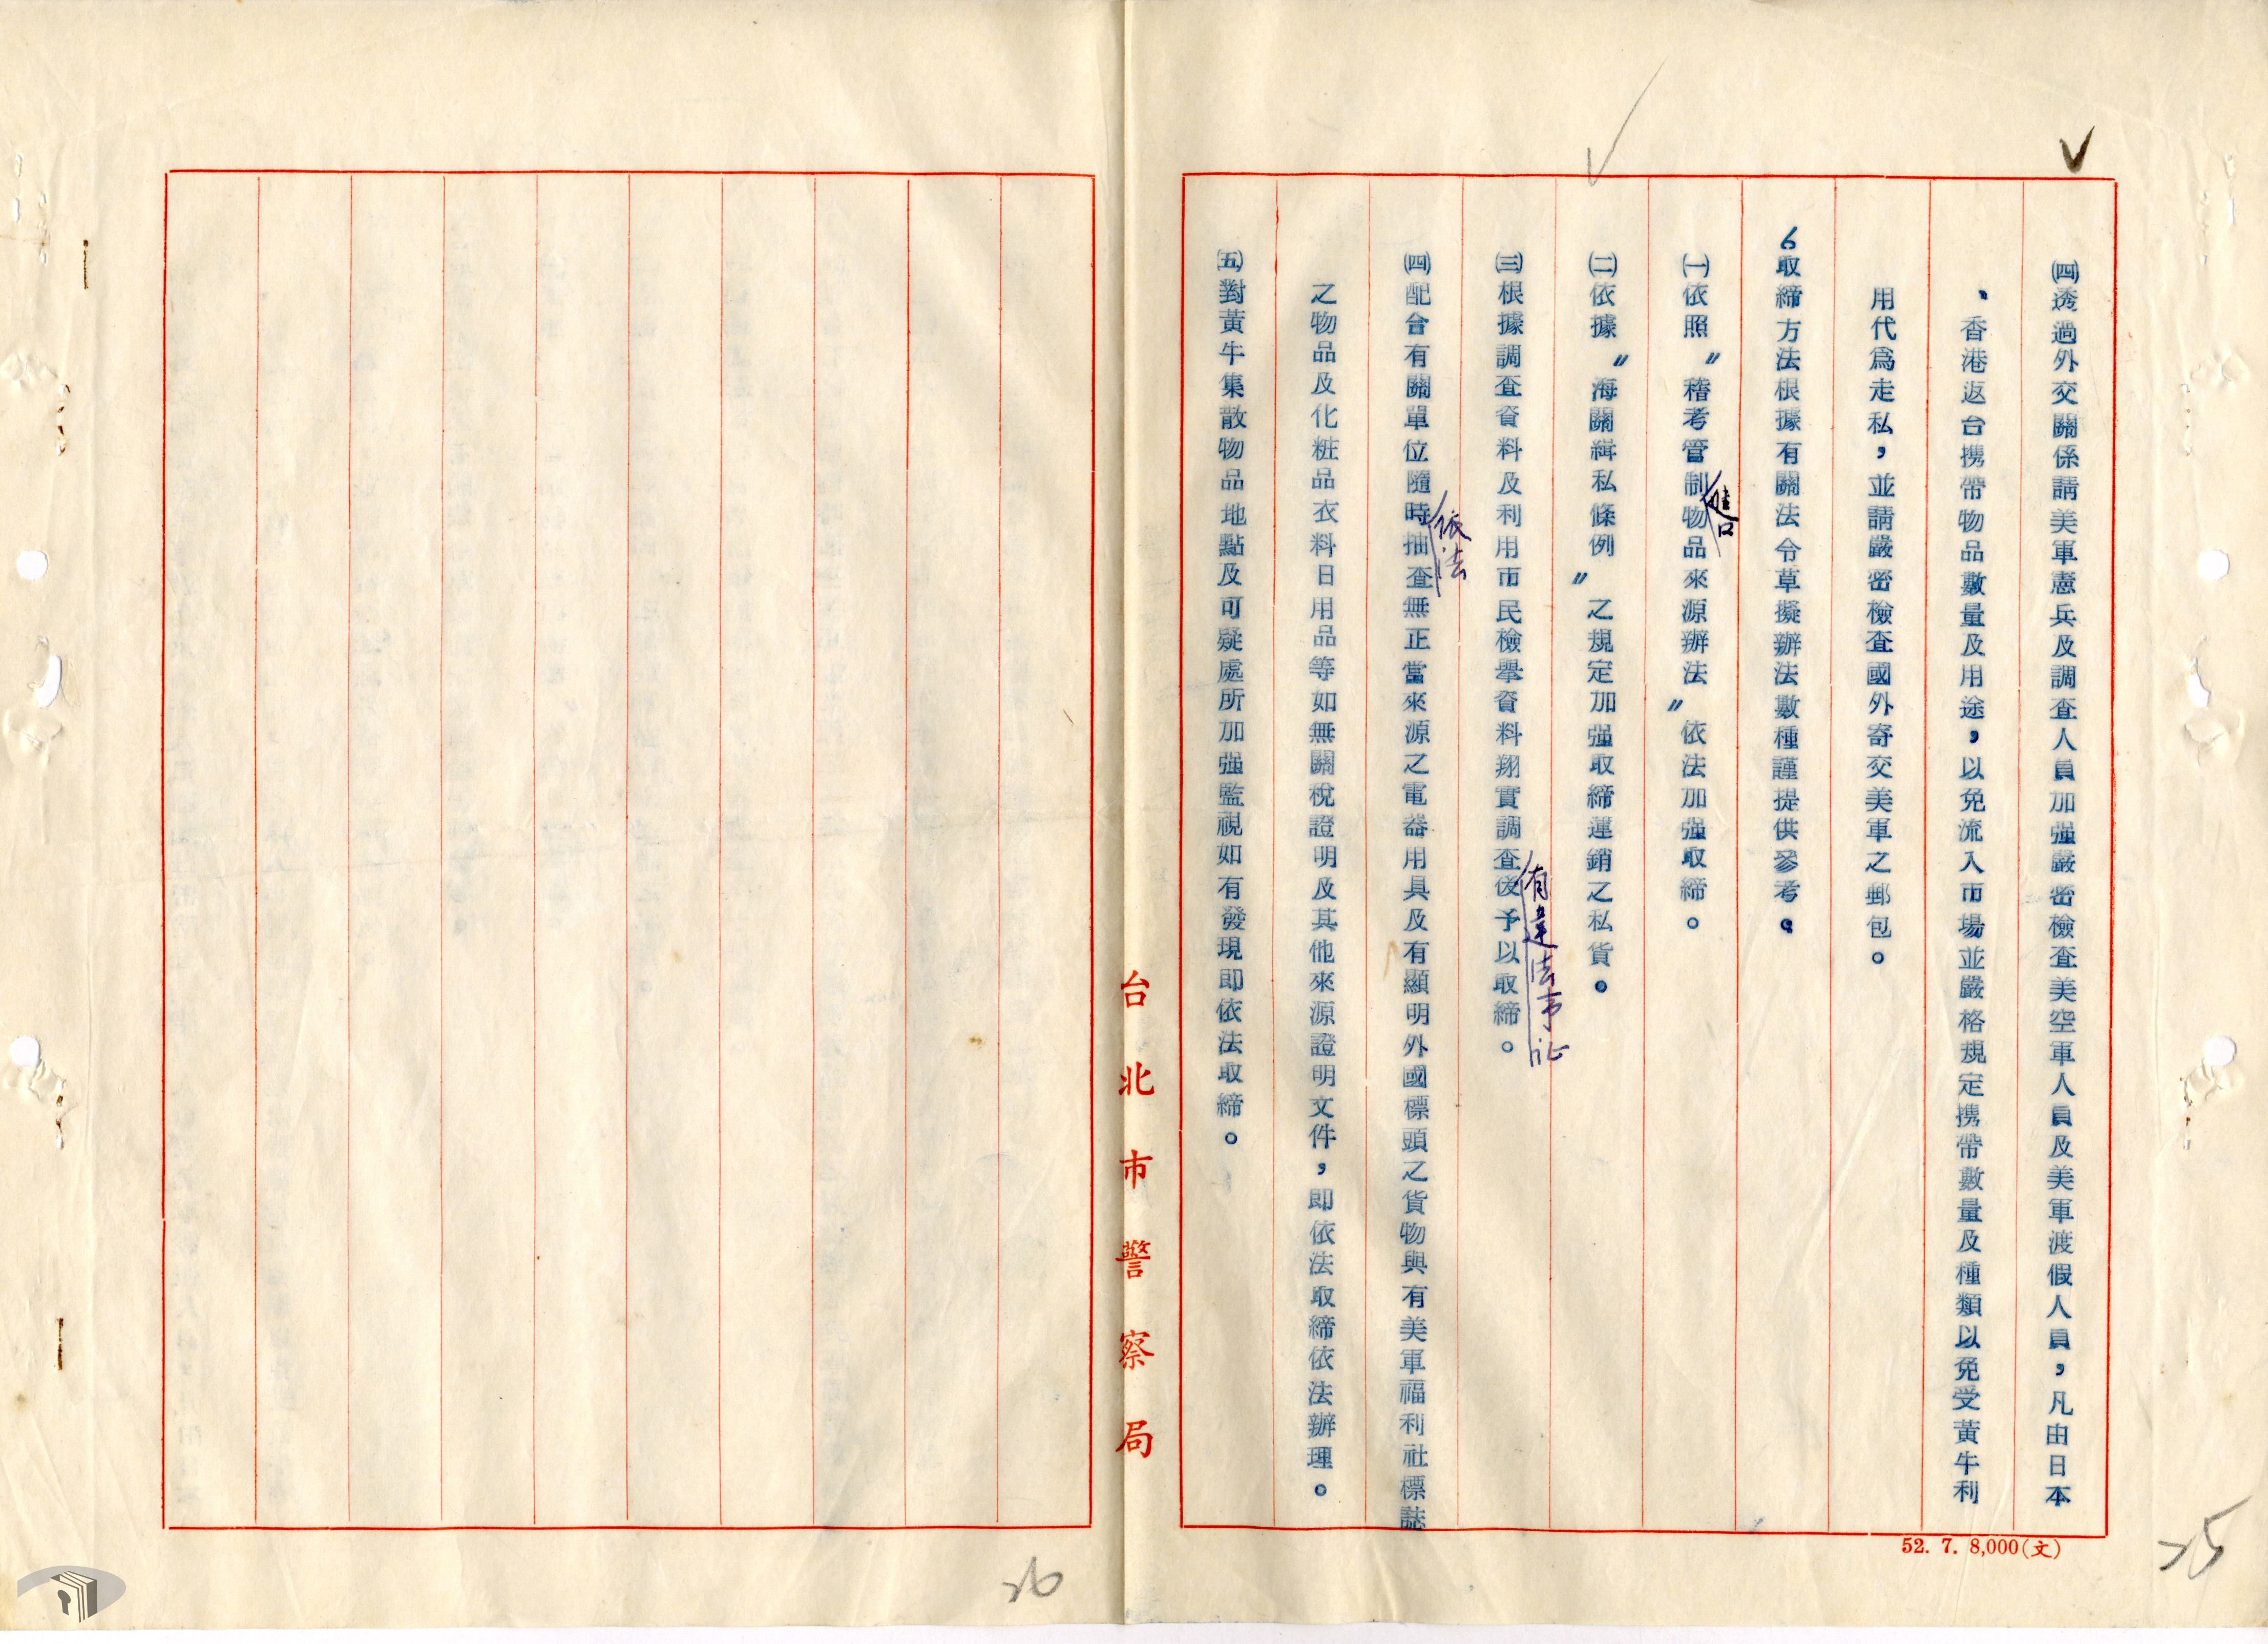 ㈣透過外交關係請美軍憲兵及調查人員加強嚴密檢查美空軍人員及美軍渡假人員，凡由日本
、香港返台携帶物品數量及用途，以免流入市場並嚴格規定携帶數量及種類以免受黃牛利
用代爲走私，並請嚴密檢查國外寄交美軍之郵包。
6取締方法根據有關法令草擬辦法數種謹提供參考。
進口
㈠依照〃稽考管制物品來源辦法〃依法加強取締。
㈡依據〃海關緝私條例〃之規定加強取締運銷之私貨。
有違法事证
㈢根據調查資料及利用市民檢舉資料翔實調查後予以取締。
依法
㈣配合有關單位隨時抽查無正當來源之電器用具及有顯明外國標頭之貨物與有美軍福利社標誌
之物品及化粧品衣料日用品等如無關稅證明及其他來源證明文件，即依法取締依法辦理。
㈤對黃牛集散物品地點及可疑處所加強監視如有發現即依法取締。
台北市警察局
52. 7. 8,000(文)
25
26